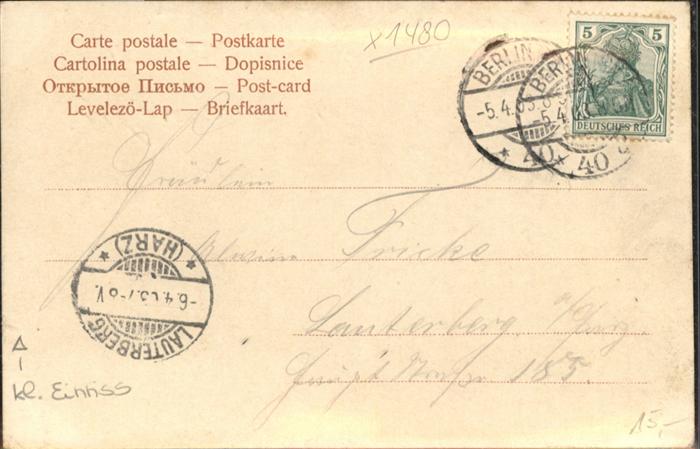 x1480
Carte postale — Postkarte
Cartolina postale — Dopisnice
Открытое Письмо — Post-card
Levelező-Lap — Briefkaart.
5 5
DEUTSCHES REICH
BERLIN
-5.4.03
* 40
BERLIN
-5.4.
* 40
Fräulein
Alwine Fricke
Lauterberg a/Harz.
Hauptstrasse 185.
LAUTERBERG
* (HARZ) *
-6.4.03.7-8V.
kl. Einriss
15,-